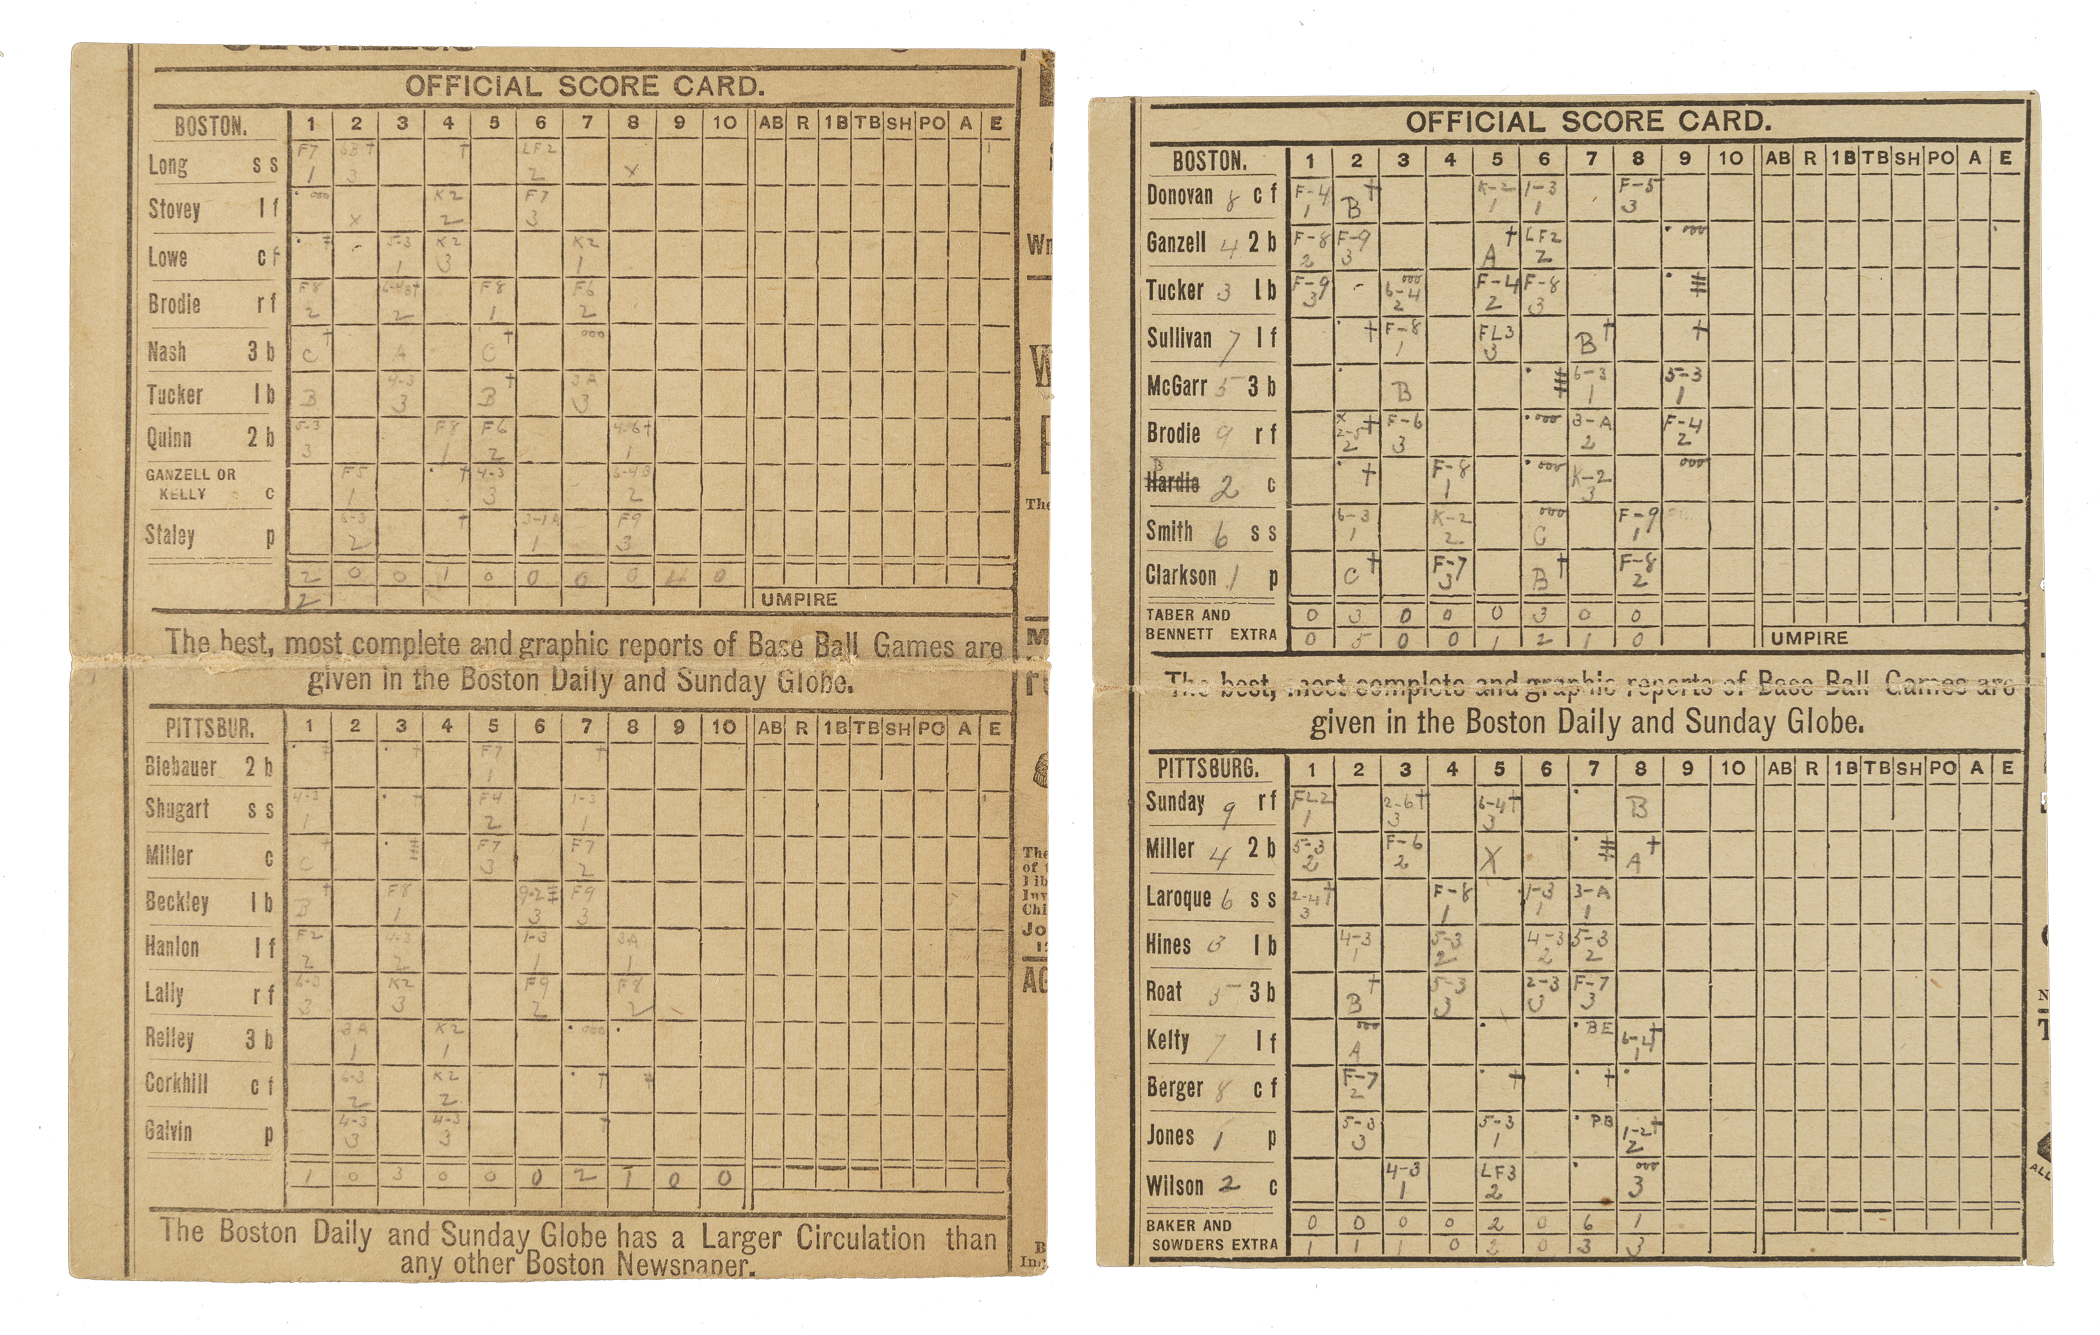 OFFICIAL SCORE CARD.
BOSTON. 1 2 3 4 5 6 7 8 9 10 AB R 1B TB SH PO A E
Long s s F7 1 3 LF2 2 X
Stovey l f ooo X K2 2 F7 3
Lowe c f 5-3 1 K2 3 K2 1
Brodie r f F8 2 2 F8 1 F6 2
Nash 3 b C † A C † ooo
Tucker l b B 4-3 3 B † 3A 3
Quinn 2 b 5-3 3 F8 1 F6 2 4-6† 1
GANZELL OR
KELLY c F5 1 † 4-3 3 2
Staley p 6-3 2 † 3-1A 1 F9 3
2 0 0 1 0 0 0 0 0
2
UMPIRE
The best, most complete and graphic reports of Base Ball Games are
given in the Boston Daily and Sunday Globe.
PITTSBUR. 1 2 3 4 5 6 7 8 9 10 AB R 1B TB SH PO A E
Biebauer 2 b † F7 1 †
Shugart s s 4-3 1 † F4 2 1-3 1
Miller c C † F7 3 F7 2
Beckley l b B † F8 1 9-2 3 F9 3
Hanlon l f F2 2 4-3 2 1-3 1 3A 1
Lally r f 6-3 3 K2 3 F9 2 F8 2
Reiley 3 b 3A 1 K2 1 ooo
Corkhill c f 6-3 2 K2 2 †
Galvin p 4-3 3 4-3 3 †
1 0 3 0 0 0 2 1 0 0
The Boston Daily and Sunday Globe has a Larger Circulation than
any other Boston Newspaper.
OFFICIAL SCORE CARD.
BOSTON. 1 2 3 4 5 6 7 8 9 10 AB R 1B TB SH PO A E
Donovan 8 c f F-4 1 B † K-2 1 1-3 1 F-5 3
Ganzell 4 2 b F-8 2 F-9 3 A † LF2 2 ooo
Tucker 3 l b F-9 3 ooo 6-4 2 F-4 2 F-8 3
Sullivan 7 l f † F-8 1 FL3 3 B † †
McGarr 5 3 b B 6-3 1 5-3 1
Brodie 9 r f X 2-5† 2 F-6 3 ooo 3-A 2 F-4 2
B
Hardie 2 c † F-8 1 ooo K-2 3 ooo
Smith 6 s s 6-3 1 K-2 2 ooo C F-9 1
Clarkson 1 p C † F-7 3 B † F-8 2
TABER AND 0 3 0 0 0 3 0 0
BENNETT EXTRA 0 5 0 0 1 2 1 0
UMPIRE
The best, most complete and graphic reports of Base Ball Games are
given in the Boston Daily and Sunday Globe.
PITTSBURG. 1 2 3 4 5 6 7 8 9 10 AB R 1B TB SH PO A E
Sunday 9 r f FL2 1 2-6† 3 6-4† 3 B
Miller 4 2 b 5-3 2 F-6 2 X A †
Laroque 6 s s 2-4† 3 F-8 1 1-3 1 3-A 1
Hines 3 l b 4-3 1 5-3 2 4-3 2 5-3 2
Roat 5 3 b B † 5-3 3 2-3 3 F-7 3
Kelty 7 l f ooo A BE 6-4† 1
Berger 8 c f F-7 2 † †
Jones 1 p 5-3 3 5-3 1 PB 1-2† 2
Wilson 2 c 4-3 1 LF3 2 ooo 3
BAKER AND 0 0 0 0 2 0 6 1
SOWDERS EXTRA 1 1 1 0 2 0 3 3